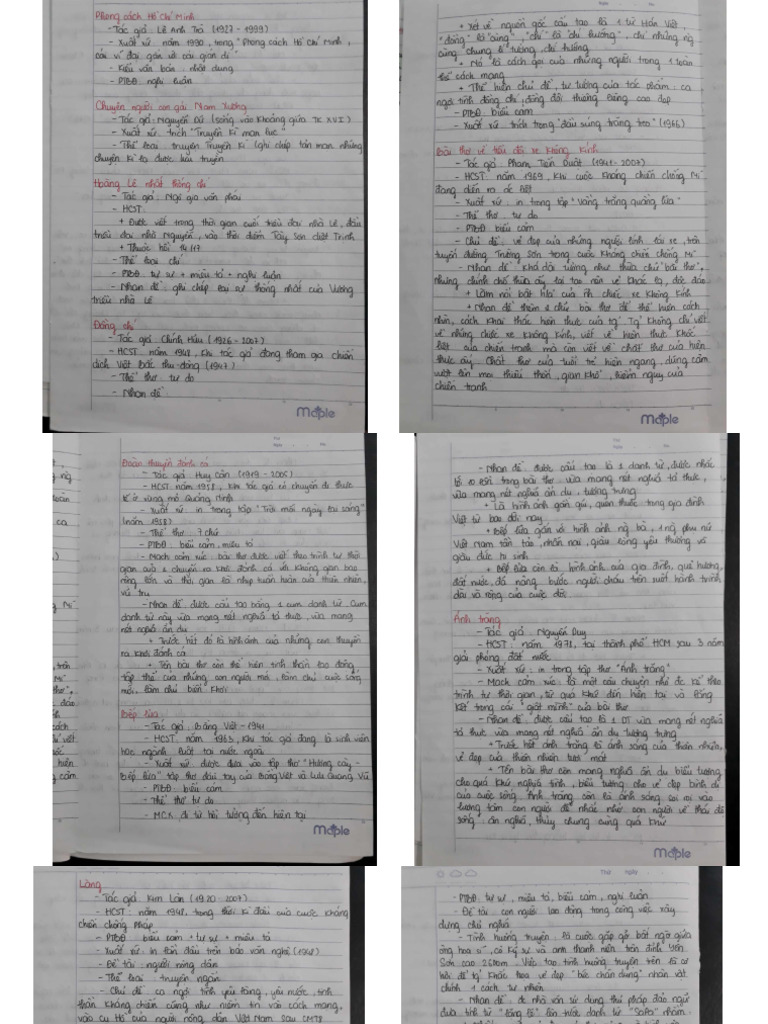 Phong cách Hồ Chí Minh
- Tác giả: Lê Anh Trà (1927 - 1999)
- Xuất xứ: năm 1990, trong "Phong cách Hồ Chí Minh,
cái vĩ đại gắn với cái giản dị"
- Kiểu văn bản: nhật dụng
- PTBĐ: nghị luận
Chuyện người con gái Nam Xương
- Tác giả: Nguyễn Dữ (sống vào khoảng giữa TK XVI)
- Xuất xứ: trích "Truyền kì mạn lục"
- Thể loại: truyện Truyền kì (ghi chép tản mạn những
chuyện kì lạ được lưu truyền
Hoàng Lê nhất thống chí
- Tác giả: Ngô gia văn phái
- HCST:
+ Được viết trong thời gian cuối triều đại nhà Lê, đầu
triều đại nhà Nguyễn, vào thời điểm Tây Sơn diệt Trịnh
+ Thuộc hồi 14/17
- Thể loại: chí
- PTBĐ: tự sự + miêu tả + nghị luận
- Nhan đề: ghi chép lại sự thống nhất của Vương
triều nhà Lê
Đồng chí
- Tác giả: Chính Hữu (1926 - 2007)
- HCST: năm 1948, khi tác giả đang tham gia chiến
dịch Việt Bắc thu-đông (1947)
- Thể thơ: tự do
- Nhan đề
Maple
+ Xét về nguồn gốc cấu tạo là 1 từ Hán Việt,
"đồng" là "cùng", "chí" là "chí hướng", chỉ những ng
cùng chung lí tưởng, chí hướng
+ Nó là cách gọi của những người trong 1 đoàn
thể cách mạng
+ Thể hiện chủ đề, tư tưởng của tác phẩm: ca
ngợi tình đồng chí, đồng đội thiêng liêng cao đẹp
- PTBĐ: biểu cảm
- Xuất xứ: trích trong "đầu súng trăng treo" (1966)
Bài thơ về tiểu đội xe không kính
- Tác giả: Phạm Tiến Duật (1941 - 2007)
- HCST: năm 1969, khi cuộc kháng chiến chống Mĩ
đang diễn ra ác liệt
- Xuất xứ: in trong tập "vầng trăng quầng lửa"
- Thể thơ: tự do
- PTBĐ: biểu cảm
- Chủ đề: vẻ đẹp của những người lính lái xe, trên
tuyến đường Trường Sơn trong cuộc kháng chiến chống Mĩ
- Nhan đề: khá dài tưởng như thừa chữ "bài thơ",
nhưng chính chỗ thừa ấy lại tạo nên vẻ khác lạ, độc đáo
+ Làm nổi bật h/a của chiếc xe không kính
+ Nhan đề thêm 2 chữ bài thơ để thể hiện cách
nhìn, cách khai thác hiện thực của tg. Tg không chỉ viết
về những chiếc xe không kính, viết về hiện thực khốc
liệt của chiến tranh mà còn viết về chất thơ của hiện
thực ấy. Chất thơ của tuổi trẻ hiên ngang, dũng cảm
vượt lên mọi thiếu thốn, gian khổ, hiểm nguy của
chiến tranh
Maple
Đoàn thuyền đánh cá
- Tác giả: Huy Cận (1919 - 2005)
- HCST: năm 1958, khi tác giả có chuyến đi thực
tế ở vùng mỏ Quảng Ninh
- Xuất xứ: in trong tập "Trời mỗi ngày lại sáng"
(năm 1958)
- Thể thơ: 7 chữ
- PTBĐ: biểu cảm, miêu tả
- Mạch cảm xúc: bài thơ được viết theo trình tự thời
gian của 1 chuyến ra khơi đánh cá với không gian bao
rộng lớn và thời gian là nhịp tuần hoàn của thiên nhiên,
vũ trụ
- Nhan đề: được cấu tạo bằng 1 cụm danh từ. Cụm
danh từ này vừa mang nét nghĩa tả thực, vừa mang
nét nghĩa ẩn dụ
+ Trước hết đó là hình ảnh của những con thuyền
ra khơi đánh cá
+ Tên bài thơ còn thể hiện tinh thần lao động
tập thể của những con người mới, làm chủ cuộc sống
mới, làm chủ biển khơi
Bếp lửa
- Tác giả: Bằng Việt - 1941
- HCST: năm 1963, khi tác giả đang là sinh viên
học ngành luật tại nước ngoài
- Xuất xứ: được đưa vào tập thơ "Hương cây -
Bếp lửa" tập thơ đầu tay của Bằng Việt và Lưu Quang Vũ
- PTBĐ: biểu cảm
- Thể thơ: tự do
- MCX: đi từ hồi tưởng đến hiện tại
Maple
- Nhan đề: được cấu tạo là 1 danh từ, được nhắc
lại 10 lần trong bài thơ vừa mang nét nghĩa tả thực,
vừa mang nét nghĩa ẩn dụ, tượng trưng
+ Là hình ảnh gần gũi, quen thuộc trong gia đình
Việt từ bao đời nay
+ Bếp lửa gắn với hình ảnh ng bà, 1 ng phụ nữ
Việt Nam tần tảo, nhẫn nại, giàu lòng yêu thương và
giàu đức hi sinh
+ Bếp lửa còn là hình ảnh của gia đình, quê hương,
đất nước, đã nâng bước người cháu trên suốt hành trình
dài và rộng của cuộc đời.
Ánh trăng
- Tác giả: Nguyễn Duy
- HCST: năm 1971, tại thành phố HCM sau 3 năm
giải phóng đất nước
- Xuất xứ: in trong tập thơ "Ánh trăng"
- Mạch cảm xúc: là một câu chuyện nhỏ đc kể theo
trình tự thời gian, từ quá khứ đến hiện tại và lắng
kết trong cái "giật mình" của bài thơ
- Nhan đề: được cấu tạo là 1 DT vừa mang nét nghĩa
tả thực vừa mang nét nghĩa ẩn dụ tượng trưng
+ Trước hết ánh trăng là ánh sáng của thiên nhiên,
vẻ đẹp của thiên nhiên tươi mát
+ Tên bài thơ còn mang nghĩa ẩn dụ biểu tượng
cho quá khứ nghĩa tình, biểu tượng cho vẻ đẹp bình dị
của cuộc sống. Ánh trăng còn là ánh sáng soi rọi vào
lương tâm con người để nhắc nhở con người về thái độ
sống: ân nghĩa, thủy chung cùng quá khứ
Maple
Làng
- Tác giả: Kim Lân (1920 - 2007)
- HCST: năm 1948, trong thời kì đầu của cuộc kháng
chiến chống Pháp
- PTBĐ: biểu cảm + tự sự + miêu tả
- Xuất xứ: in lần đầu trên báo văn nghệ (1948)
- Đề tài: người nông dân
- Thể loại: truyện ngắn
- Chủ đề: ca ngợi tình yêu làng, yêu nước, tinh
thần kháng chiến cũng như niềm tin vào cách mạng,
vào cụ Hồ của người nông dân Việt Nam sau CMT8
- PTBĐ: tự sự, miêu tả, biểu cảm, nghị luận
- Đề tài: con người lao động trong công việc xây
dựng chủ nghĩa
- Tình huống truyện: là cuộc gặp gỡ bất ngờ giữa
ông họa sĩ, cô kỹ sư và anh thanh niên trên đỉnh Yên
Sơn cao 2600m. Việc tạo tình huống truyện trên là cơ
hội để tg khắc họa vẻ đẹp "bức chân dung" nhân vật
chính 1 cách tự nhiên
- Nhan đề: đc nhà văn sử dụng thủ pháp đảo ngữ
đưa tính từ "lặng lẽ" lên trước danh từ "SaPa" nhằm